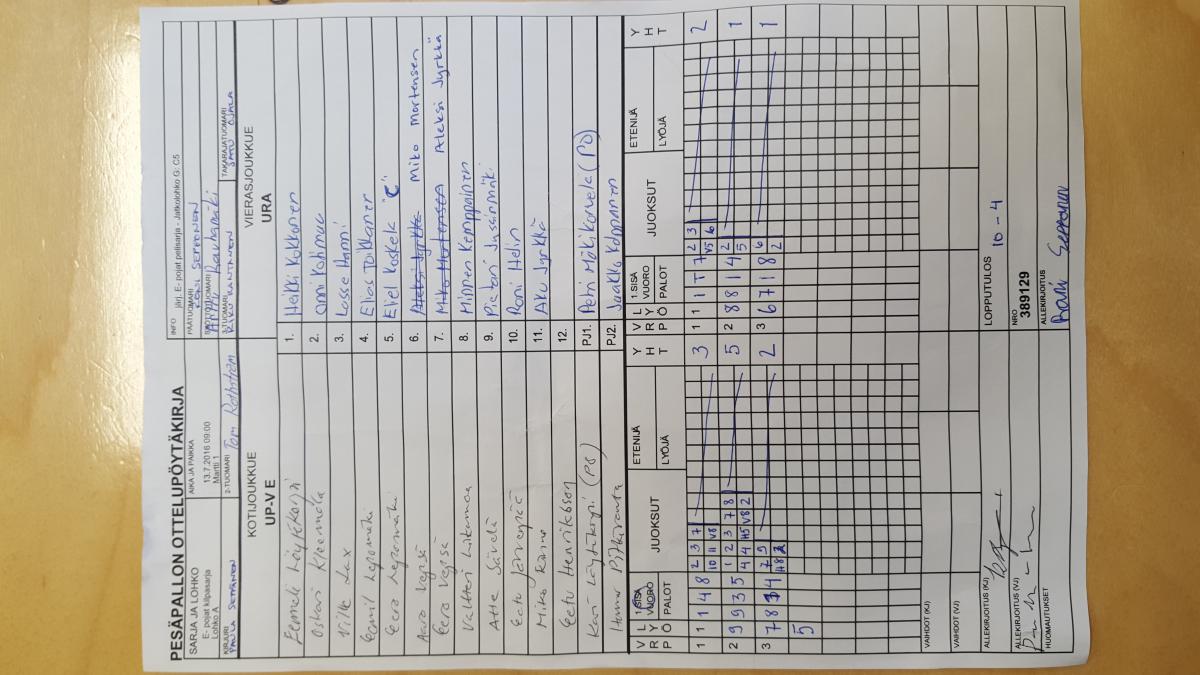 PESÄPALLON OTTELUPÖYTÄKIRJA
INFO järj. E- pojat pelisarja - Jatkolohko G: C5
SARJA JA LOHKO
E- pojat kilpasarja
Lohko A
AIKA JA PAIKKA
13.7.2016 09:00
Martti 1
PÄÄTUOMARI
SEPPÄNEN
SYÖTTÖTUOMARI
KIRJURI
PAULA SEPPÄNEN
2-TUOMARI Tom Rothström
3-TUOMARI
RIKU RANTANEN
TAKARAJATUOMARI
SATU OJALA
KOTIJOUKKUE
UP-V E
VIERASJOUKKUE
URA
Eemeli Löytökorpi 1. Heikki Kokkonen
Oskari Kleemola 2. Onni Kohmuu
Ville Lax 3. Lasse Hanni
Eemil Lepomäki 4. Elias Toikkanen
Eero Lepomäki 5. Eevel Koskela "C"
Aaro Vepsä 6. Aleksi Jyrkkä Miko Mortensen
Eero Vepsä 7. Miko Mortensen Aleksi Jyrkkä
Valtteri 8. Miinen Kemppainen
Atte Sävelä 9. Pietari Jussinmäki
Eetu Järvenpää 10. Roni Helin
Miko 11. Aku Jyrkkä
Eetu Henriksson 12.
Kari Löytökorpi (PJ) PJ1. Petri Mäkikorvela (PJ)
Pitkäranta PJ2. Jaakko Kolppanen
V L 1.SISÄ JUOKSUT ETENIJÄ Y
R Y VUORO H
P Ö PALOT LYÖJÄ T
V L 1.SISÄ JUOKSUT ETENIJÄ Y
R Y VUORO H
P Ö PALOT LYÖJÄ T
1 1 1 4 8 2 3 7 3
10 11 V8
1 1 1 1 7 2 3 2
V5 6
2 9 9 3 5 1 2 3 7 8 5
4 4 H5 V8 2
2 8 8 1 4 2 1
5
3 7 8 4 7 9 2
H8
3 6 7 1 8 6 1
2
5
VAIHDOT (KJ)
VAIHDOT (VJ)
ALLEKIRJOITUS (KJ)
LOPPUTULOS 10 - 4
ALLEKIRJOITUS (VJ)
NRO
389129
HUOMAUTUKSET
ALLEKIRJOITUS